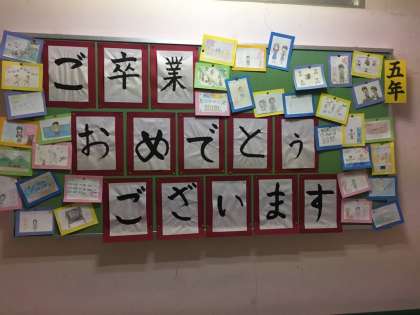 ご卒業
おめでとう
ございます
五年